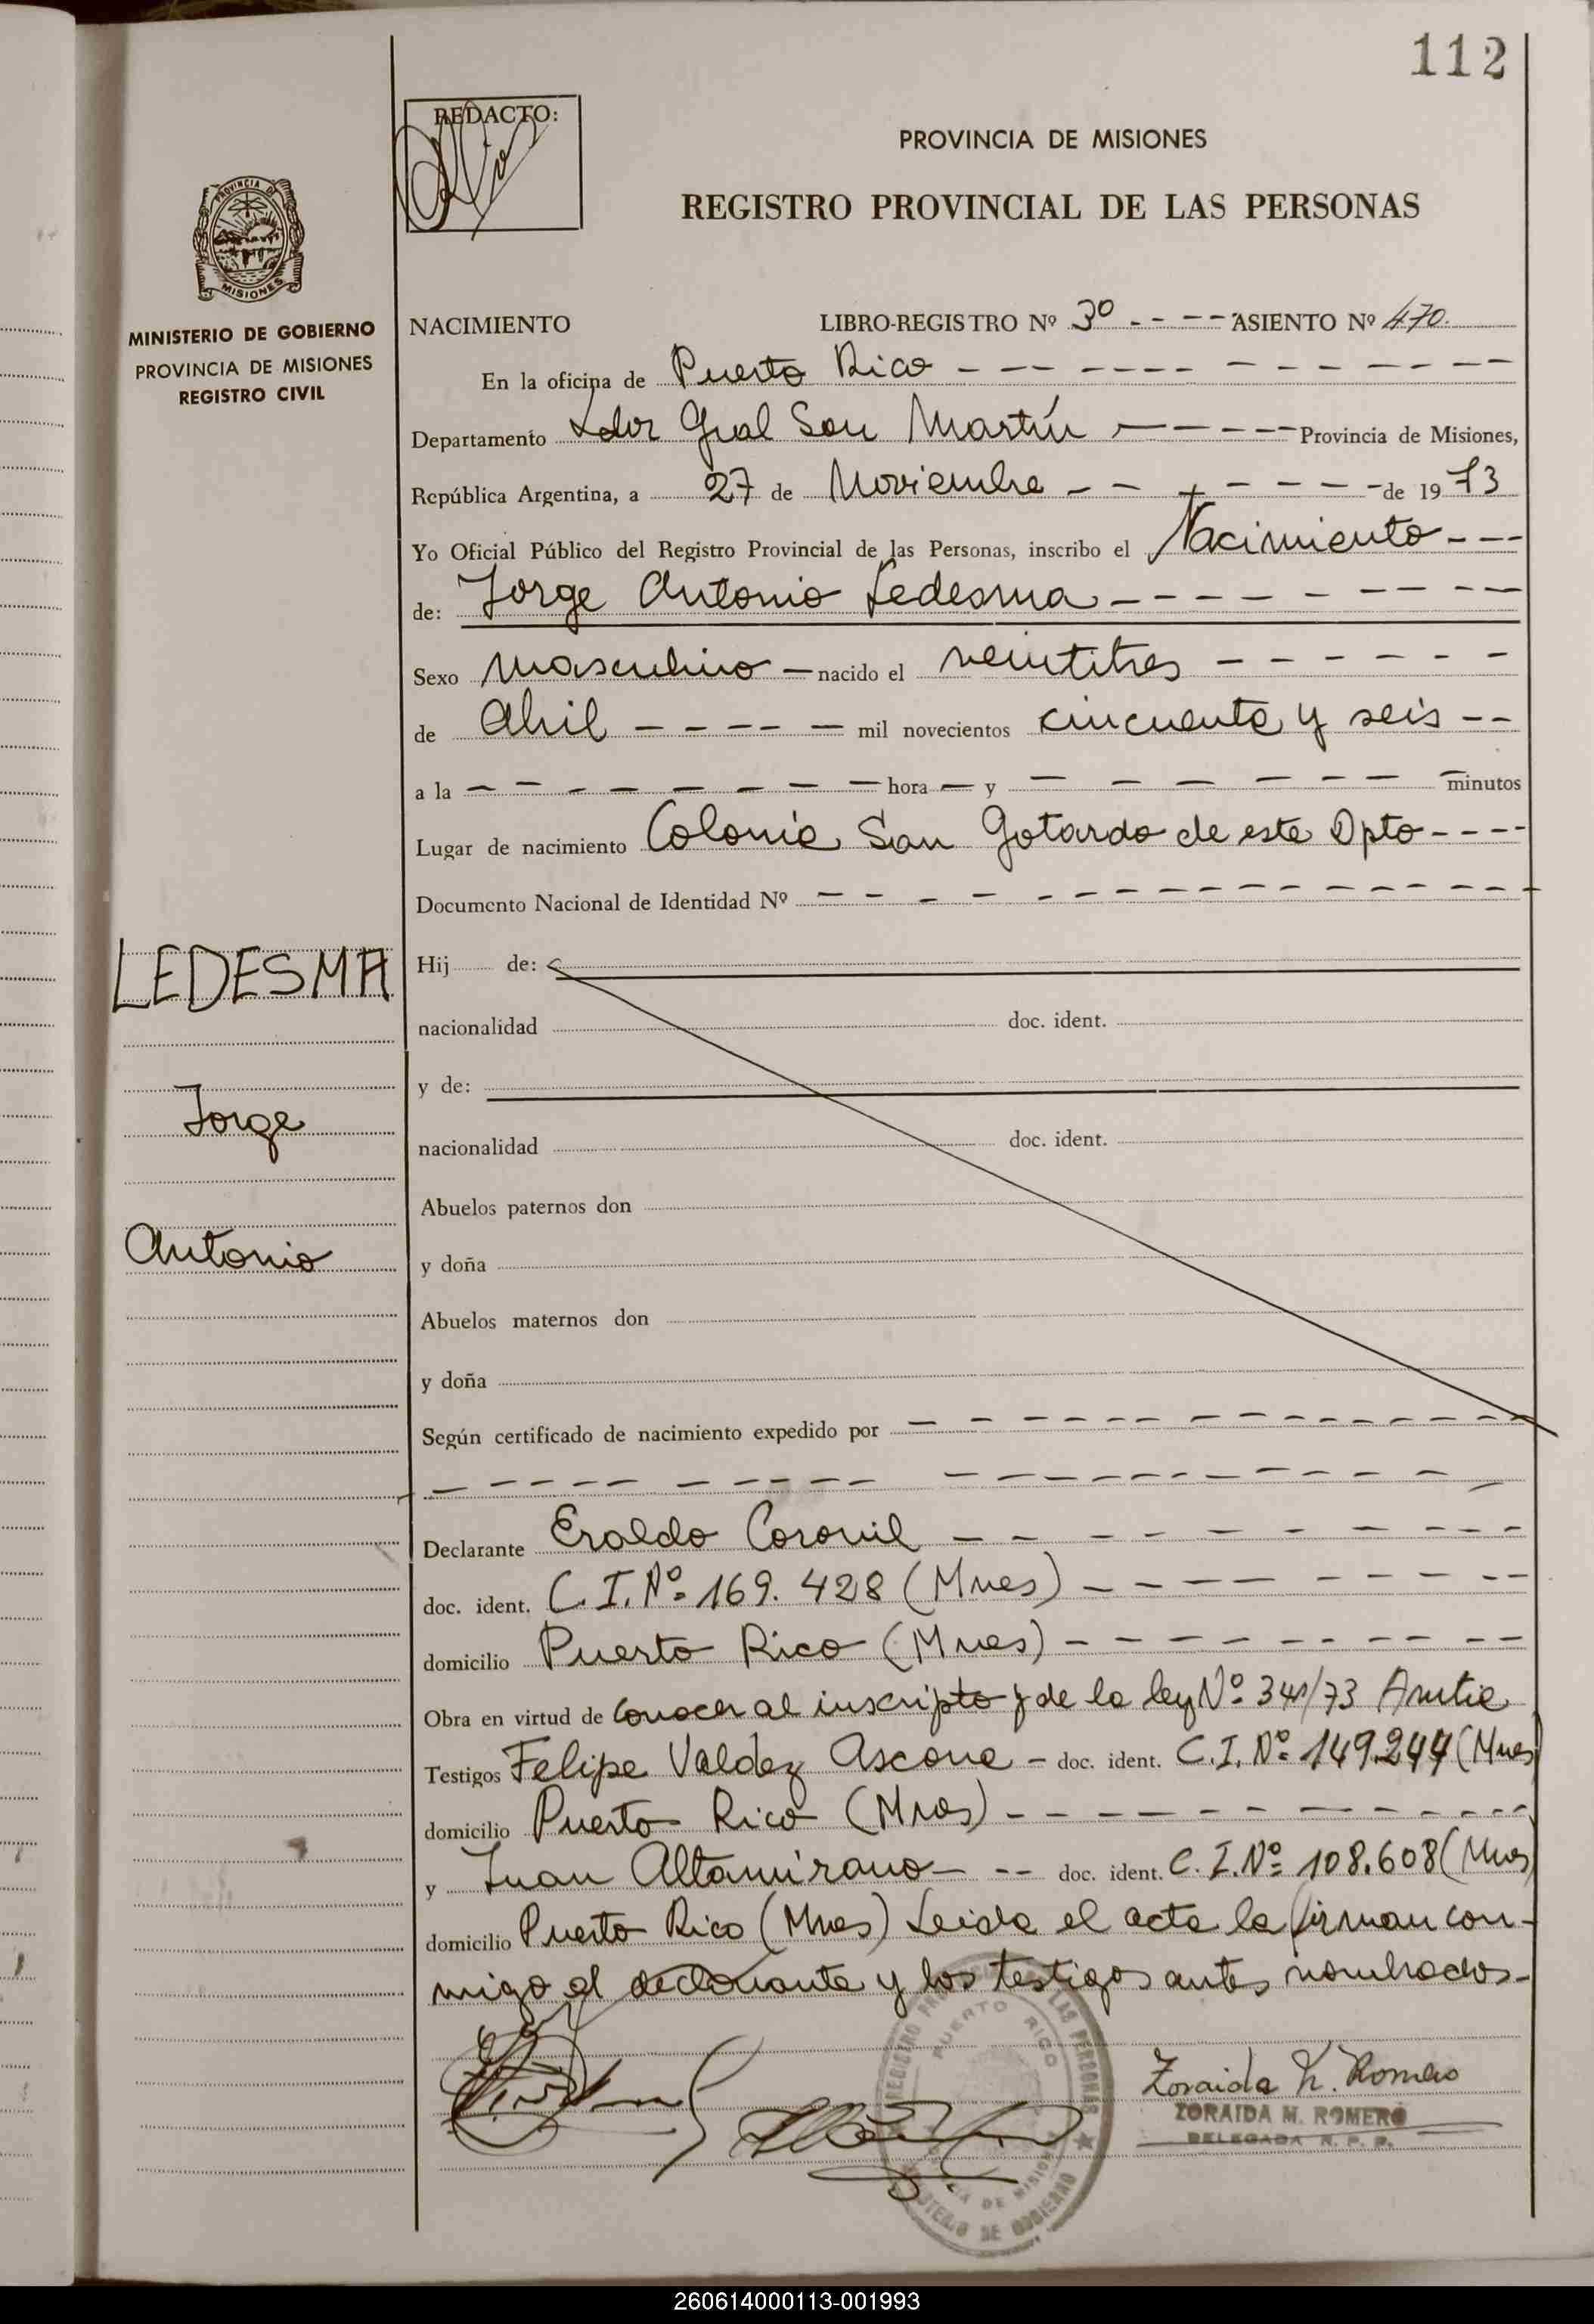 112
REDACTO:
PROVINCIA DE MISIONES
REGISTRO PROVINCIAL DE LAS PERSONAS
PROVINCIA DE
MISIONES
MINISTERIO DE GOBIERNO
PROVINCIA DE MISIONES
REGISTRO CIVIL
NACIMIENTO LIBRO-REGISTRO Nº 3º - - - - ASIENTO Nº 470.
En la oficina de Puerto Rico - - - - - - - - - - - - - -
Departamento Ldor Gral San Martín - - - - - Provincia de Misiones,
República Argentina, a 27 de Noviembre - - - - - - - de 1973
Yo Oficial Público del Registro Provincial de las Personas, inscribo el Nacimiento - - -
de: Jorge Antonio Ledesma - - - - - - - - -
Sexo Masculino - nacido el veintitres - - - - - -
de Abril - - - - - mil novecientos cincuenta y seis - -
a la - - - - - - - - hora - y - - - - - - - - minutos
Lugar de nacimiento Colonia San Gotardo de este Dpto - - - -
Documento Nacional de Identidad Nº - - - - - - - - - - - - - -
LEDESMA
Jorge
Antonio
Hij de:
nacionalidad doc. ident.
y de:
nacionalidad doc. ident.
Abuelos paternos don
y doña
Abuelos maternos don
y doña
Según certificado de nacimiento expedido por - - - - - - - - - - - - -
- - - - - - - - - - - - - - - - - - - -
Declarante Eraldo Coronil - - - - - - - - - -
doc. ident. C. I. Nº 169. 428 (Mnes) - - - - - - - - -
domicilio Puerto Rico (Mnes) - - - - - - - - - -
Obra en virtud de Conocer al inscripto y de la ley Nº /73
Testigos Felipe Valdez Ascona - doc. ident. C. I. Nº 149.244 (Mnes)
domicilio Puerto Rico (Mnes) - - - - - - - - - - -
y Juan Altamirano - - - doc. ident. C. I. Nº 108.608 (Mnes)
domicilio Puerto Rico (Mnes) Leida el acta la firman con-
migo el declarante y los testigos antes nombrados-
REGISTRO PROVINCIAL DE LAS PERSONAS
PUERTO RICO
PROVINCIA DE MISIONES
MINISTERIO DE GOBIERNO
Zoraida M. Romero
ZORAIDA M. ROMERO
DELEGADA R. P. P.
260614000113-001993